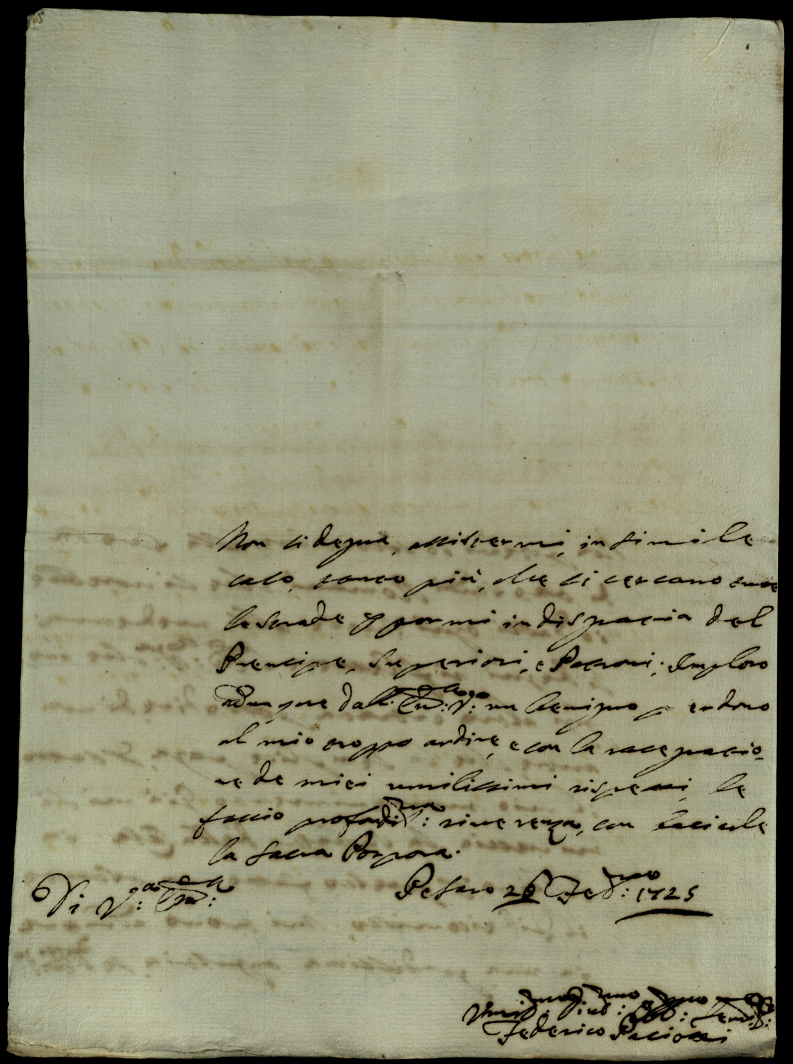 Non si degna, assistermi, in simile
caso, tanto più, che si cercano tutte
le strade p pormi in disgrazia del
Prencipe, Superiori, e Padroni; Imploro
adunque dall' Em: V: un benigno perdono
al mio troppo ardire, e con la
de miei umilissimi rispetti, le
faccio profondissma: riverenza, con baciarle
la Sacra Porpora.
Di V:a Em:za
Pesaro 26 Feb:ro 1725
Umilmo: Divmo: Obbmo: Servre:
Federico